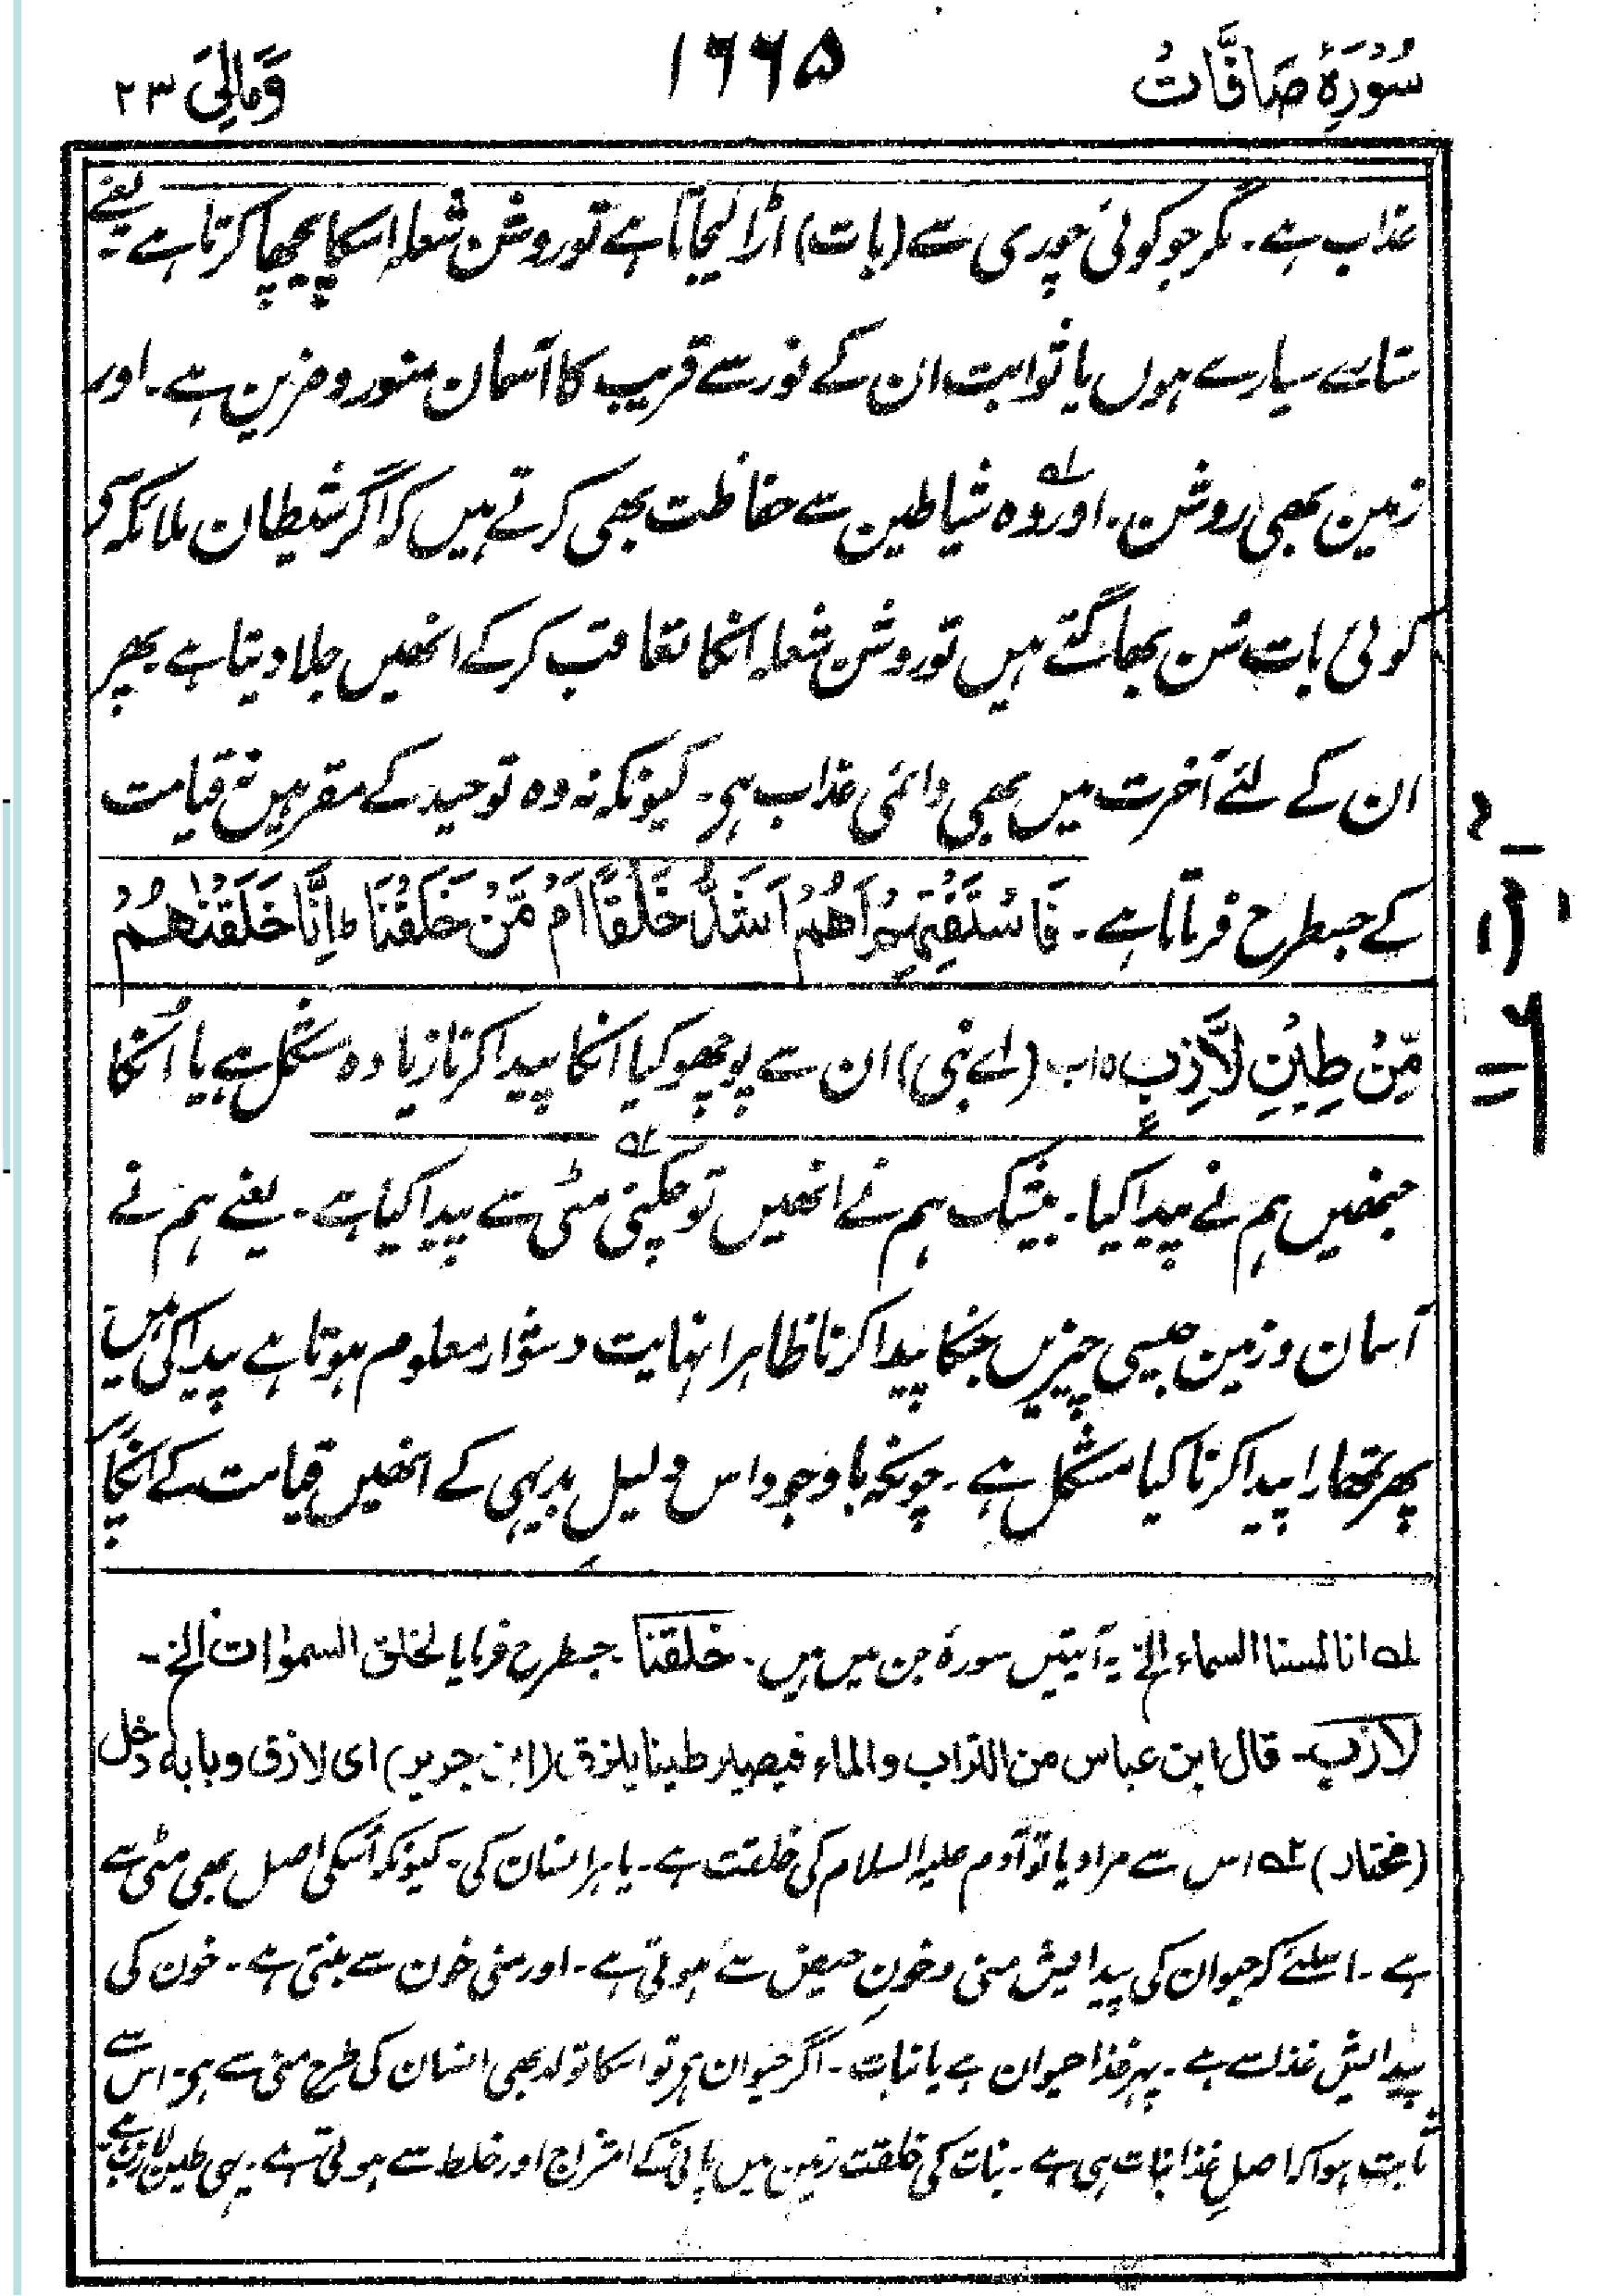 سُوْرَۂِ صَافَّاتْ
۱۶۶۵
وَمَالِیَ ۲۳
عذاب ہے۔ مگر جو کوئی چوری سے (بات) اڑا لیجاتا ہے تو روشن شعلہ اسکا پیچھا کرتا ہے۔ یعنے
ستارے سیارے ہوں یا ثوابت ان کے نور سے قریب کا آسمان منور و مزین ہے۔ اور
زمین بھی روشن۔ اور ؎۱ وہ شیاطین سے حفاظت بھی کرتے ہیں کہ اگر شیطان ملائکہ کی
کوئی بات سُن بھاگتے ہیں تو روشن شعلہ انکا تعاقب کر کے انھیں جلا دیتا ہے پھر
ان کے لئے آخرت میں بھی دائمی عذاب ہی۔ کیونکہ نہ وہ توحید کے مقر ہیں نہ قیامت
کے جسطرح فرماتا ہے۔ فَاسْتَفْتِهِمْ اَهُمْ اَشَدُّ خَلْقًا اَمْ مَّنْ خَلَقْنَا ؕ اِنَّا خَلَقْنٰهُمْ
مِّنْ طِیْنٍ لَّازِبٍ ہ اب (اے نبی) ان سے پوچھو کیا انکا پیدا کرنا زیادہ مشکل ہے یا اُنکا
جنھیں ہم نے پیدا کیا۔ بیشک ہم نے انھیں تو چکنی ؎۲ مٹی سے پیدا کیا ہے۔ یعنے ہم نے
آسمان و زمین جیسی چیزیں جنکا پیدا کرنا ظاہرا نہایت دشوار معلوم ہوتا ہے پیدا کی ہیں
پھر تمھارا پیدا کرنا کیا مشکل ہے۔ چونکہ باوجود اس دلیل بدیہی کے انھیں قیامت کے
؎۱ انا لمسنا السماء الخ یہ آیتیں سورۂ جن میں ہیں۔ خلقنا۔ جسطرح فرمایا لخلق السمٰوات الخ۔
لازب۔ قال ابن عباس من التراب والماء فیصیر طینا یلزق (ابن جریر) ای لازق وبابه دخل
(مختار) ؎۲ اس سے مراد یا تو آدم علیہ السلام کی خلقت ہے۔ یا ہر انسان کی۔ کیونکہ اُسکی اصل بھی مٹی سے
ہے۔ اسلئے کہ حیوان کی پیدایش منی و خونِ حیض سے ہوتی ہے۔ اور منی خون سے بنتی ہے۔ خون کی
پیدایش غذا سے ہے۔ پہر غذا حیوان ہے یا نبات۔ اگر حیوان ہو تو اسکا تولد بھی انسان کی طرح منی سے ہی۔ اس سے
ثابت ہوا کہ اصلِ غذا نبات ہی ہے۔ نبات کی خلقت زمین میں پانی کے امتزاج اور خلط سے ہوتی ہے۔ یہی طین لازب ہے۔